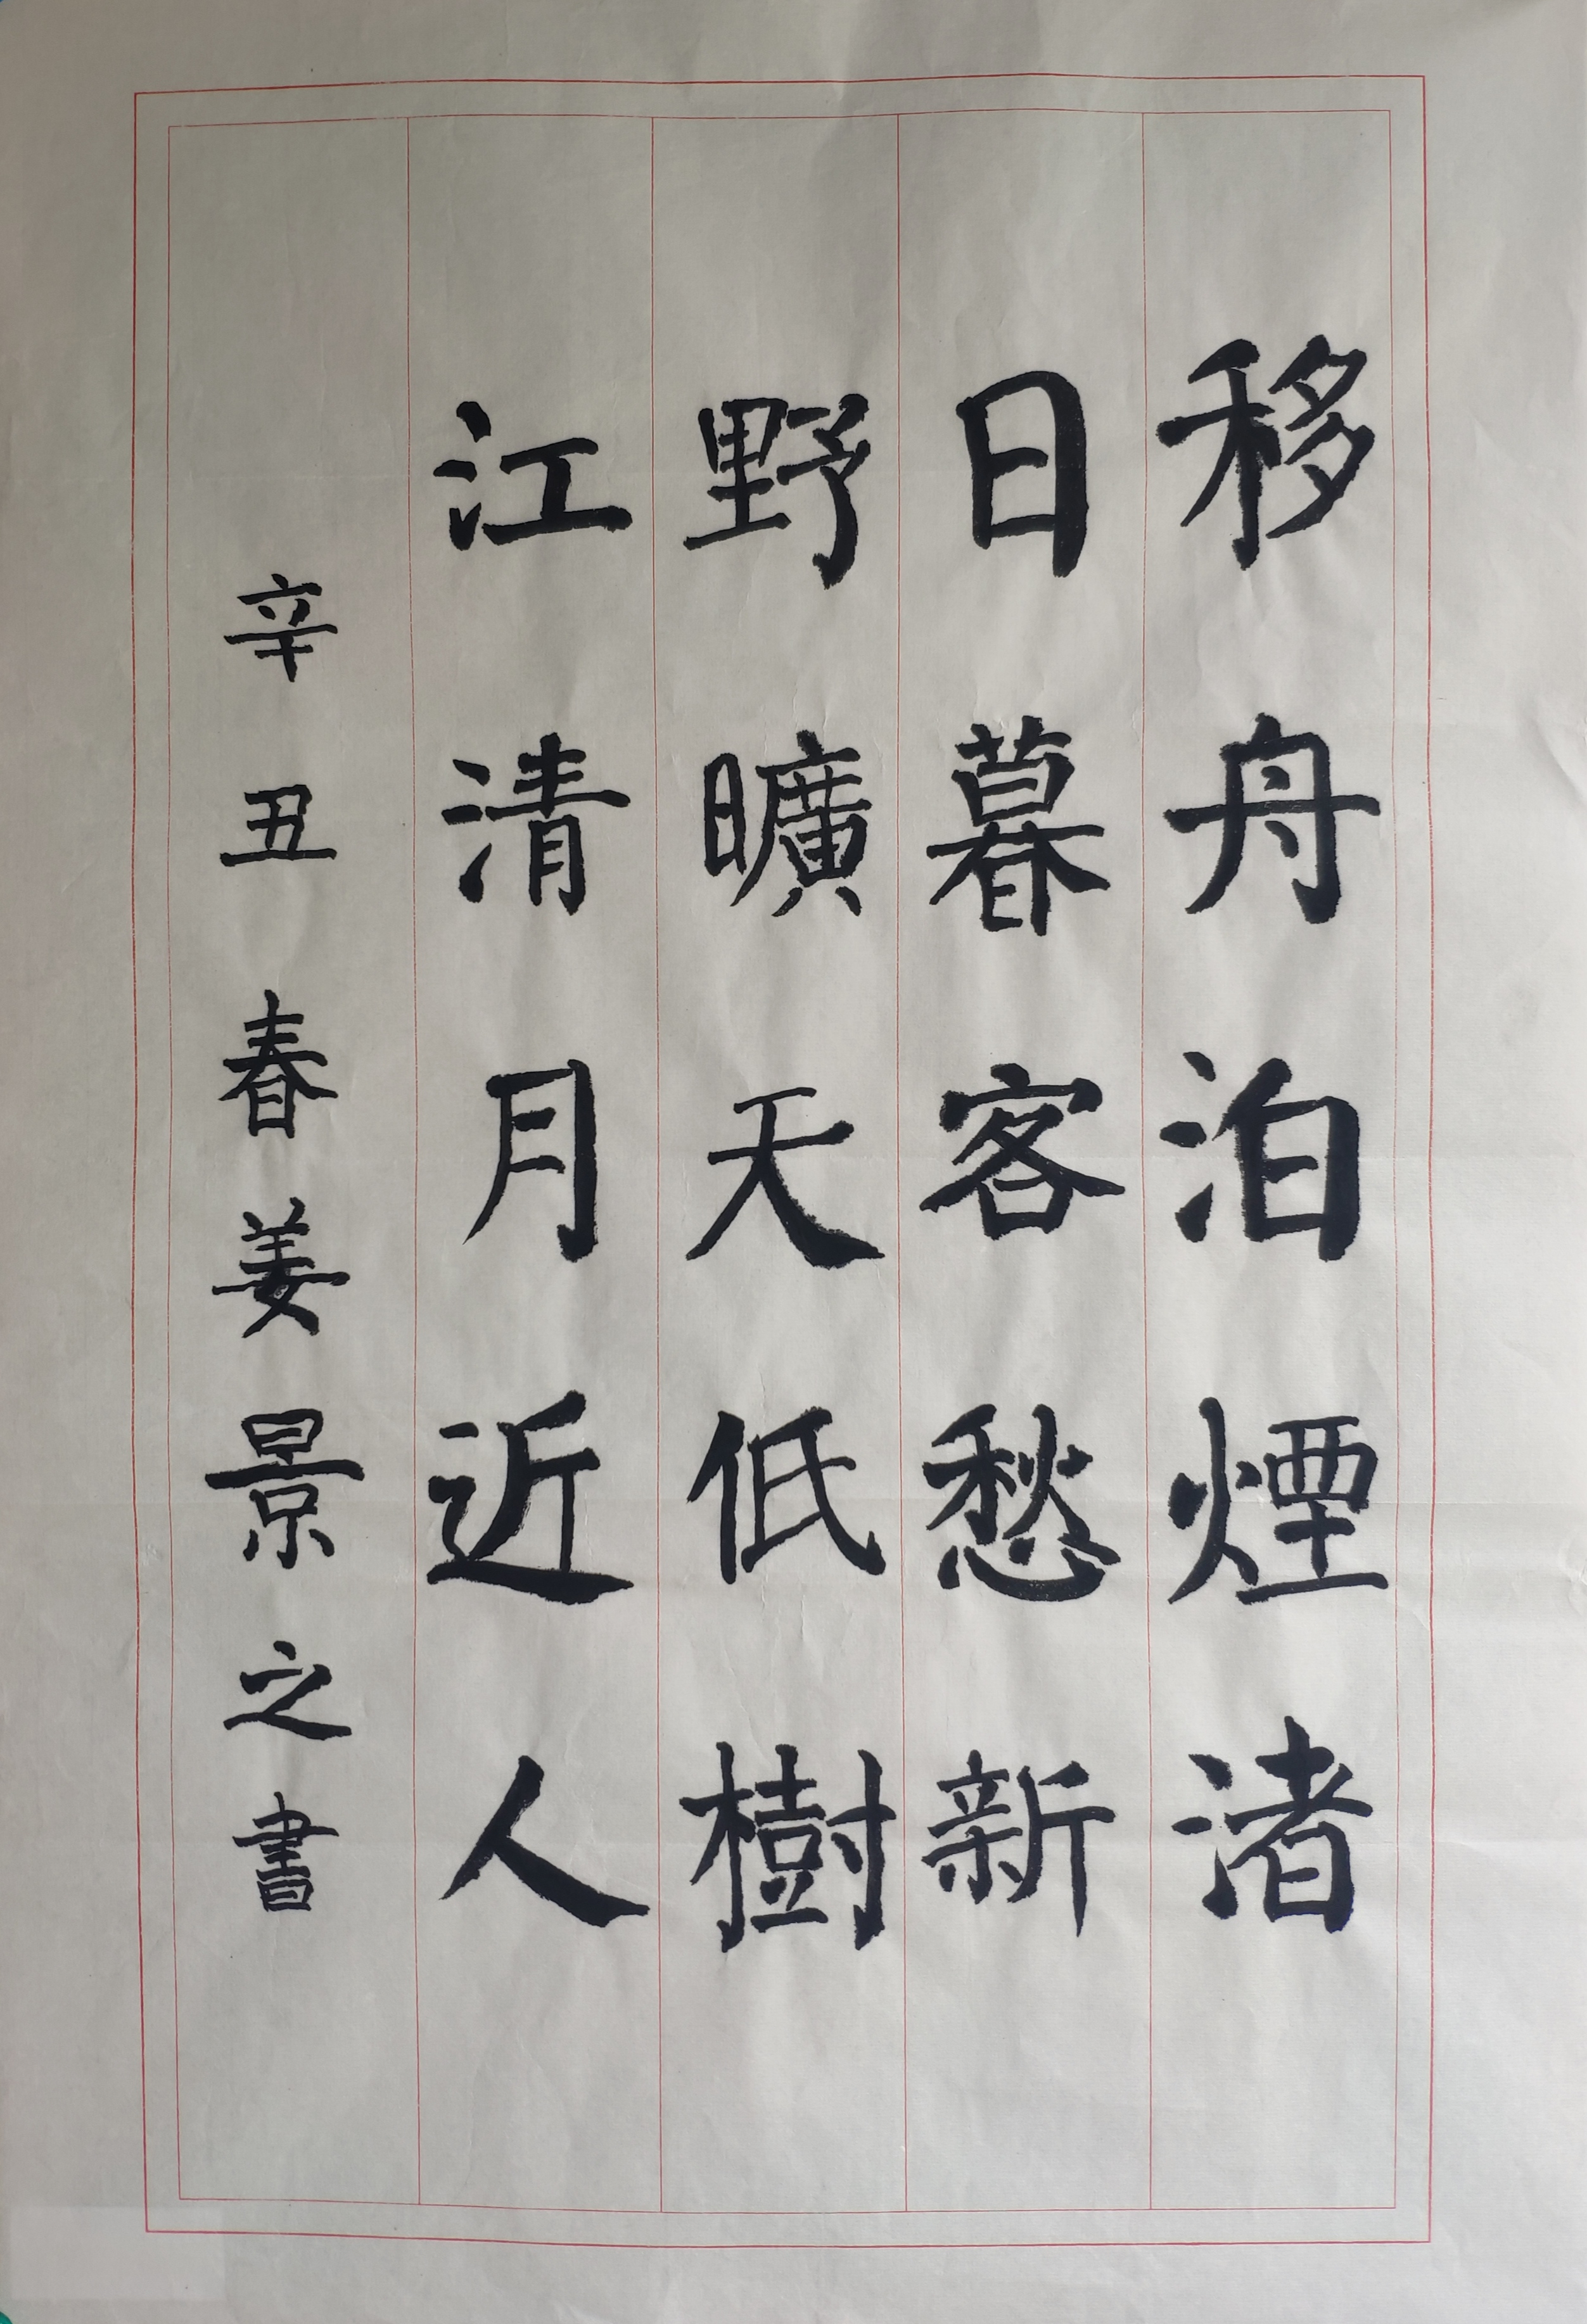 移舟泊煙渚
日暮客愁新
野曠天低樹
江清月近人
辛丑春姜景之書